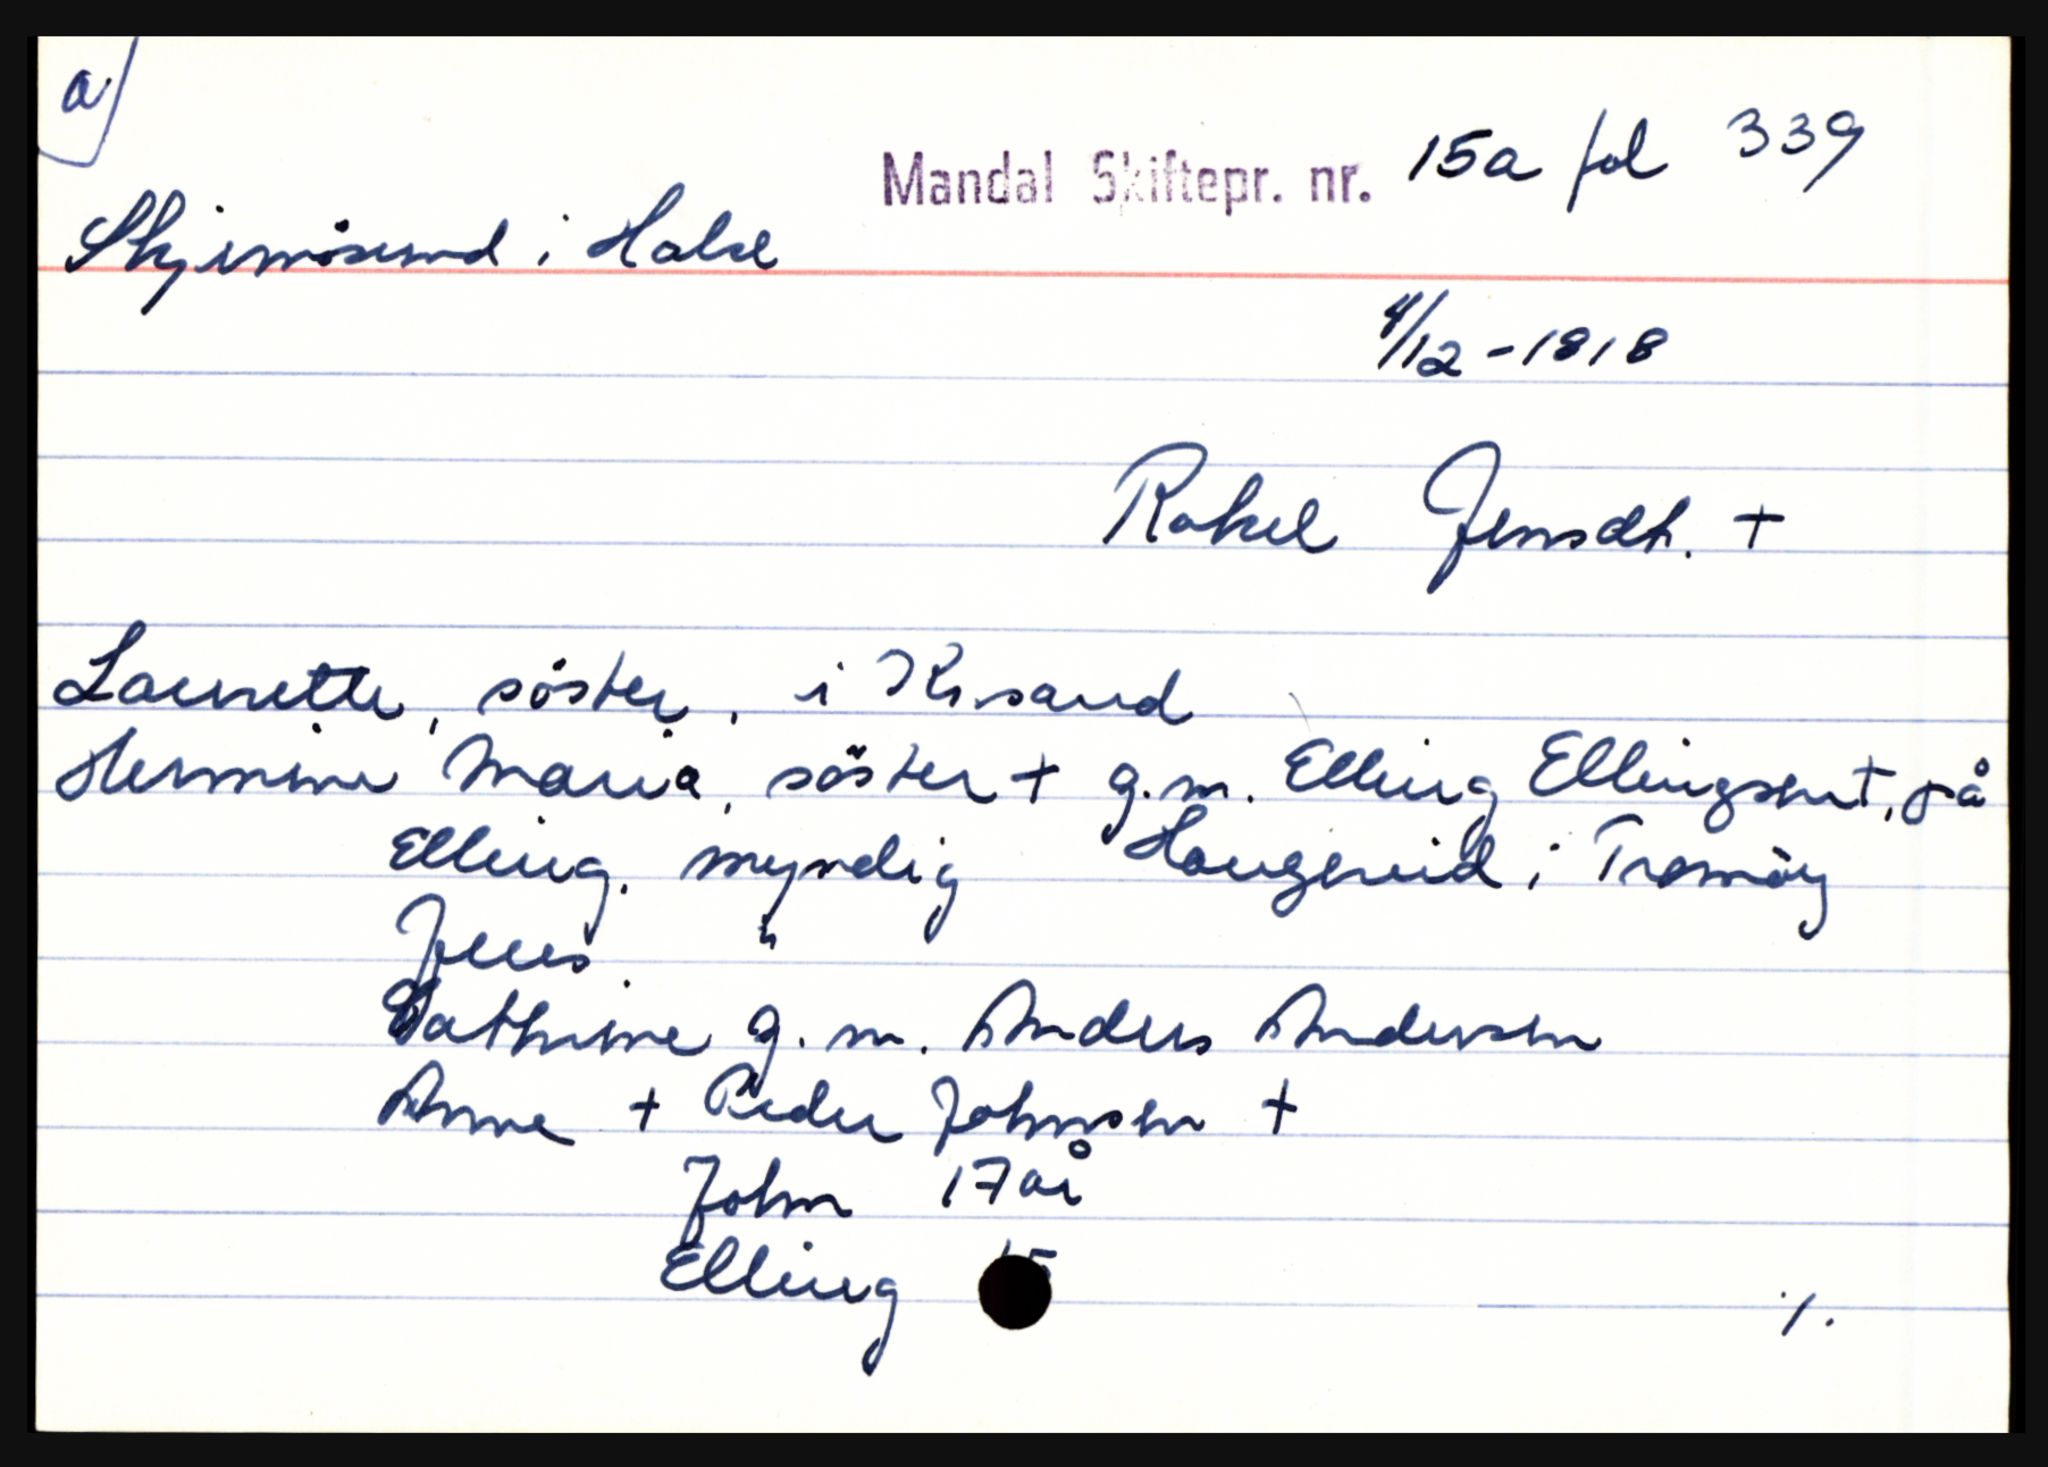 a
Mandal Skiftepr. nr. 15a fol 339
Skjernösund i Halse
4/12-1818
Rakel Jensdt. +
Laurette, söster, i Kr.sand
Hermine Maria, söster + g.m. Elling Ellingsen +, på
Elling. myndig Haugeveid i Tromöy
Jens. "
Cathrine g.m. Anders Andersen
Anne + Peder Johnsen +
John 17 år
Elling 15
%